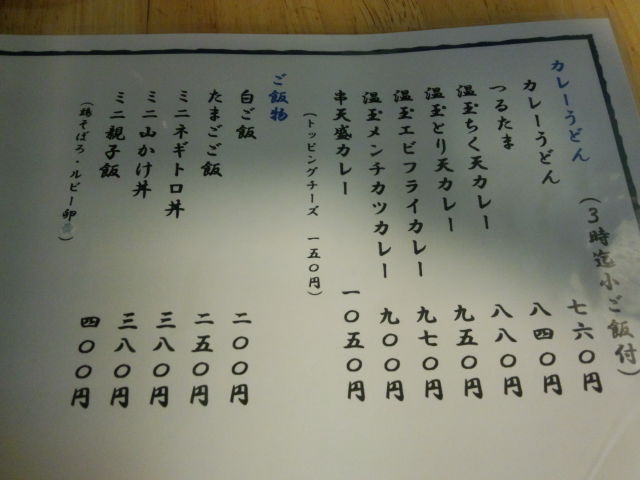 カレーうどん (3時迄小ご飯付)
カレーうどん 七六〇円
つるたま 八四〇円
温玉ちく天カレー 八八〇円
温玉とり天カレー 九五〇円
温玉エビフライカレー 九七〇円
温玉メンチカツカレー 九〇〇円
串天盛カレー 一〇五〇円
(トッピングチーズ 一五〇円)
ご飯物
白ご飯 二〇〇円
たまごご飯 二五〇円
ミニネギトロ丼 三八〇円
ミニ山かけ丼 三八〇円
ミニ親子飯 四〇〇円
(鶏そぼろ・ルビー卵)